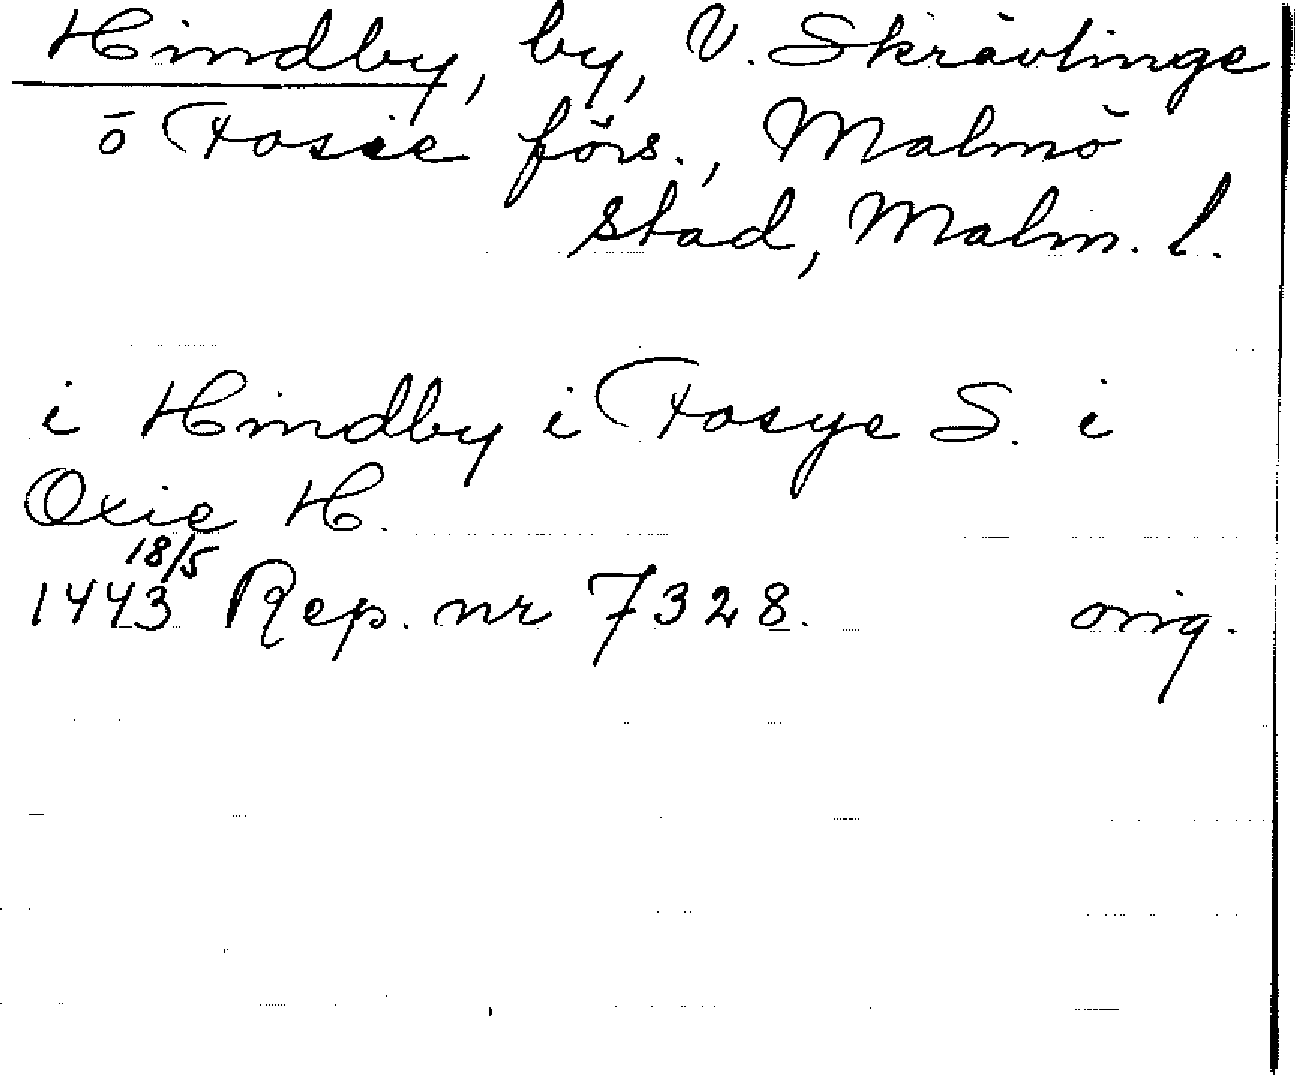 Hindby, by, V. Skrävlinge
o Fosie förs., Malmö
stad, Malm. l.
i Hindby i Fosye S. i
Oxie H.
18/5
1443 Rep. nr 7328. orig.